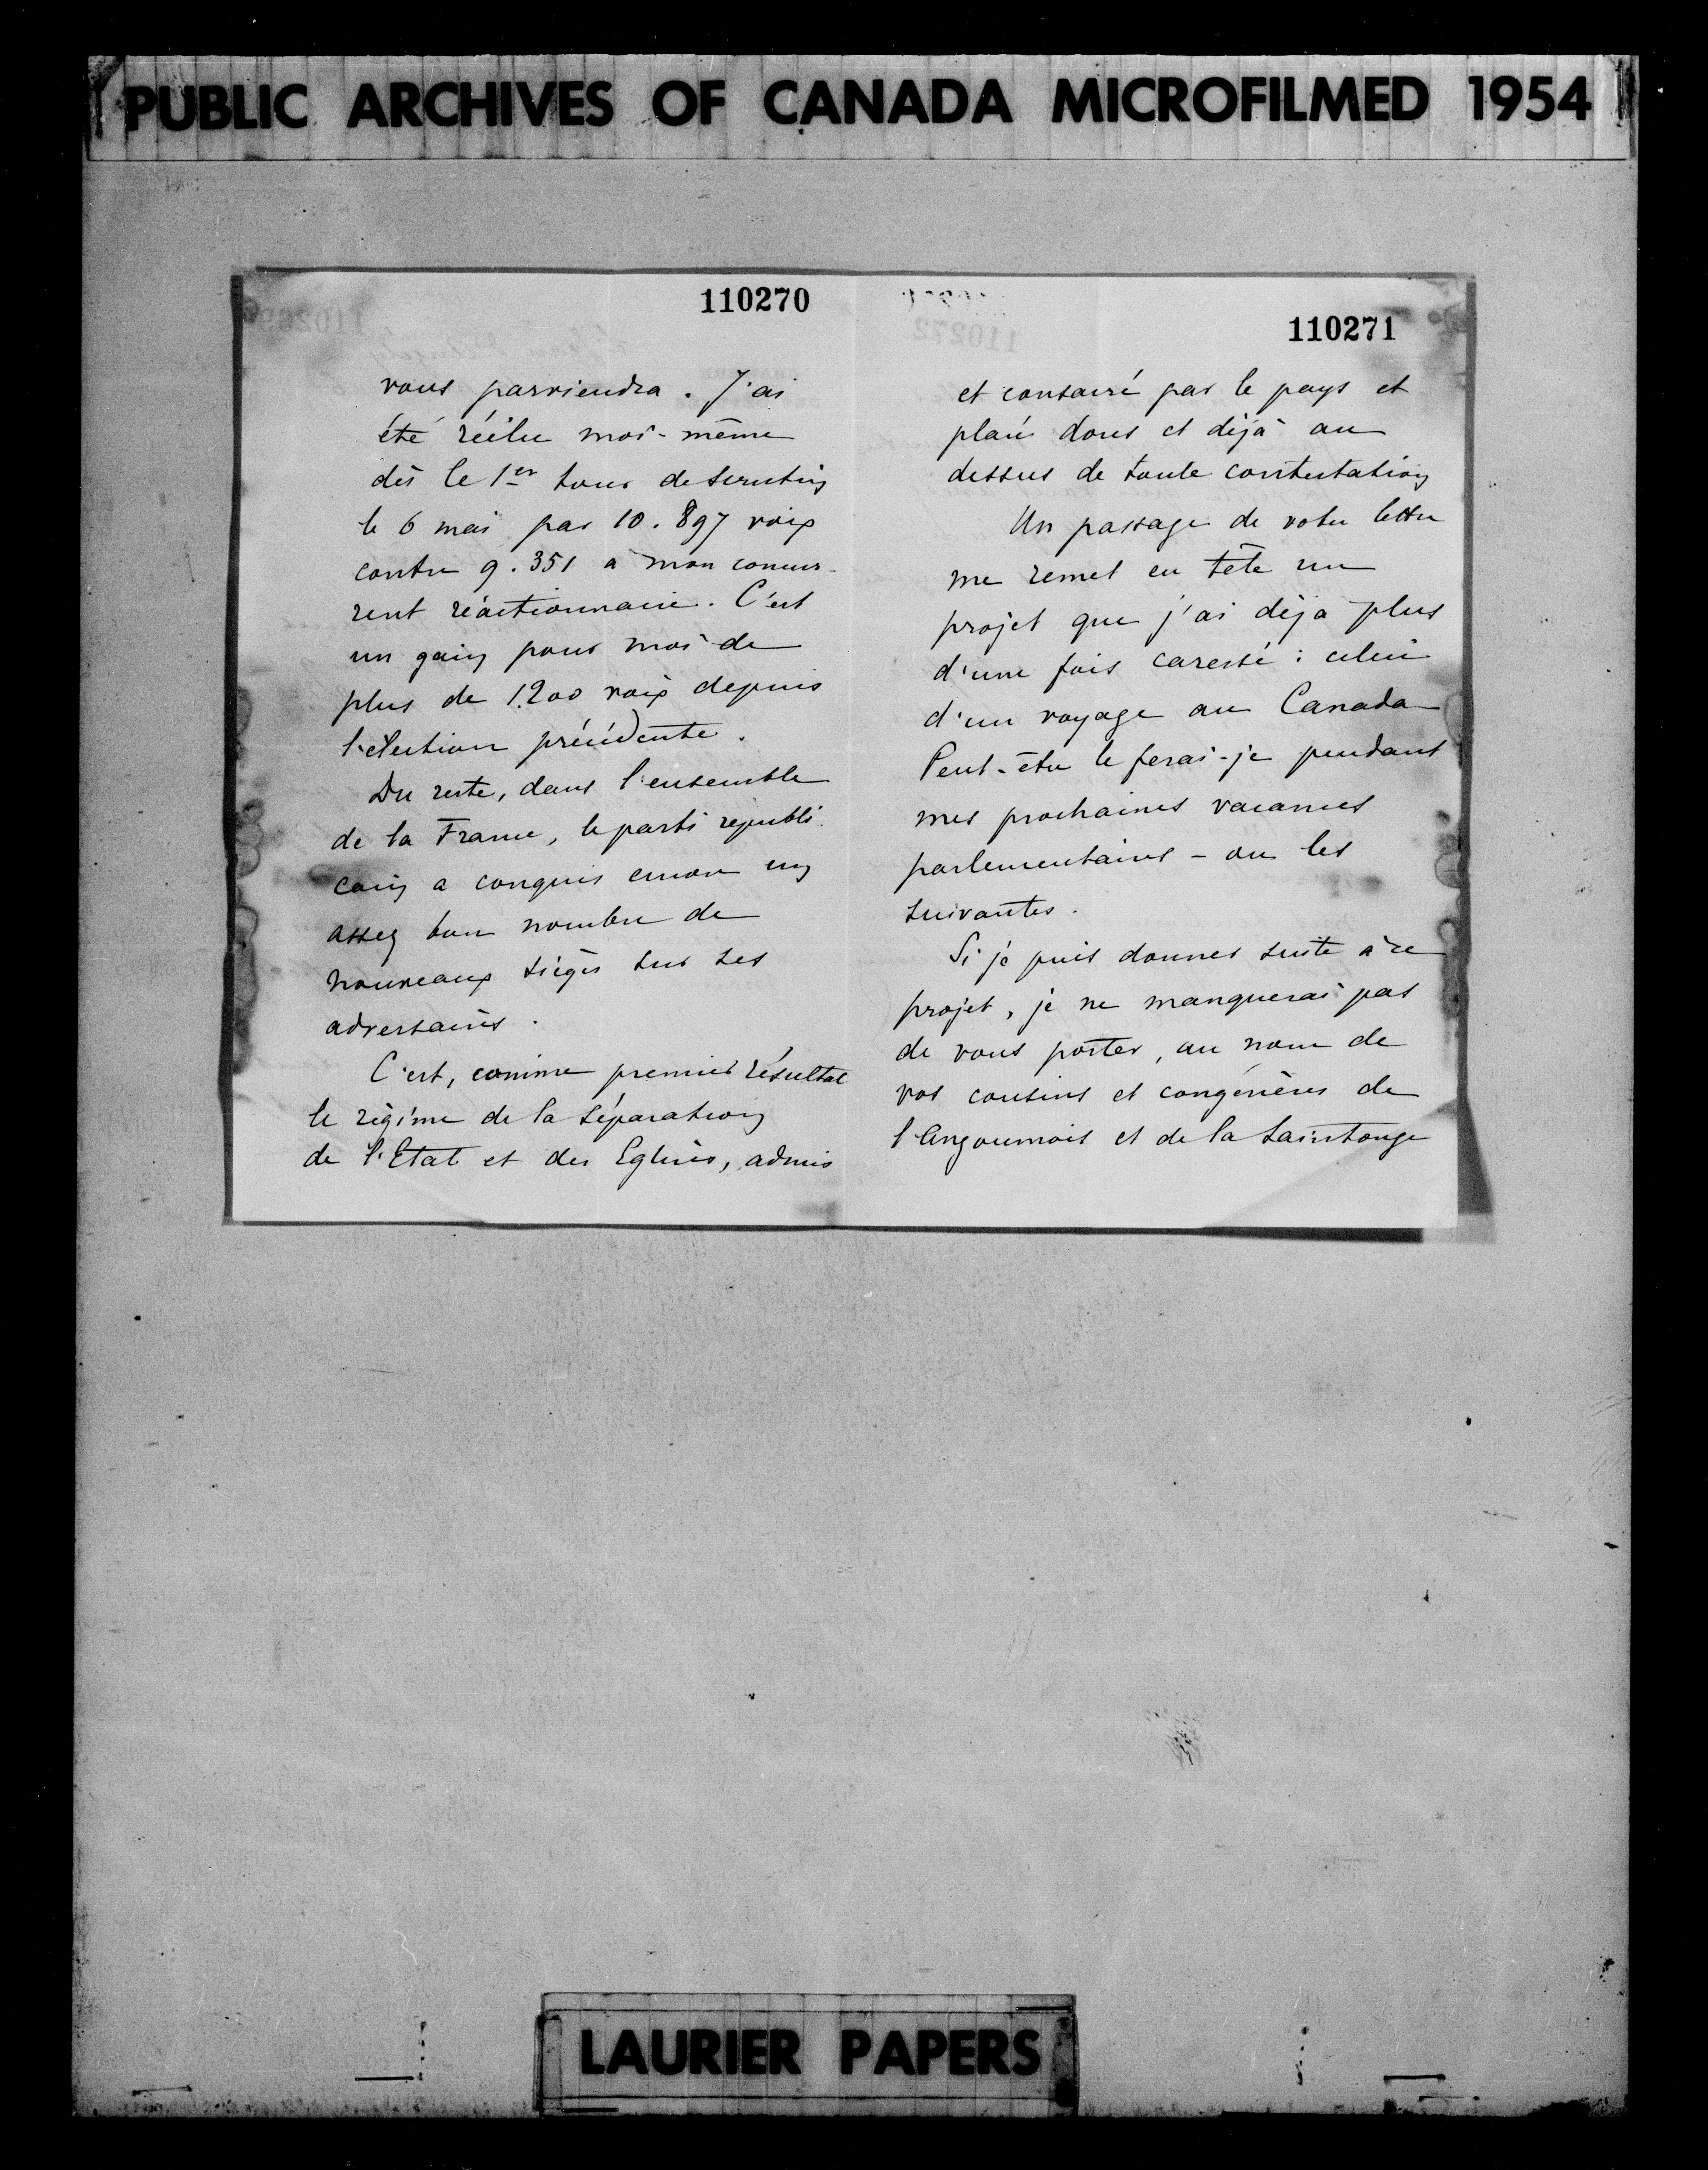 PUBLIC ARCHIVES OF CANADA MICROFILMED 1954
110270
vous parviendra. J'ai
été réélu moi-même
dès le 1er tour de scrutin
le 6 mai par 10.897 voix
contre 9.351 à mon concur-
rent réactionnaire. C'est
un gain pour moi de
plus de 1.200 voix depuis
l'élection précédente.
Du reste, dans l'ensemble
de la France, le parti républi-
cain a conquis encore un
assez bon nombre de
nouveaux sièges sur ses
adversaires.
C'est, comme premier résultat
le régime de la Séparation
de l'Etat et des Eglises, admis
110271
et consacré par le pays et
placé dores et déjà au
dessus de toute contestation
Un passage de votre lettre
me remet en tête un
projet que j'ai déjà plus
d'une fois caressé : celui
d'un voyage au Canada
Peut-être le ferai-je pendant
mes prochaines vacances
parlementaires - ou les
suivantes.
Si je puis donner suite à ce
projet, je ne manquerai pas
de vous porter, au nom de
vos cousins et congénères de
l'Angoumois et de la Saintonge
LAURIER PAPERS